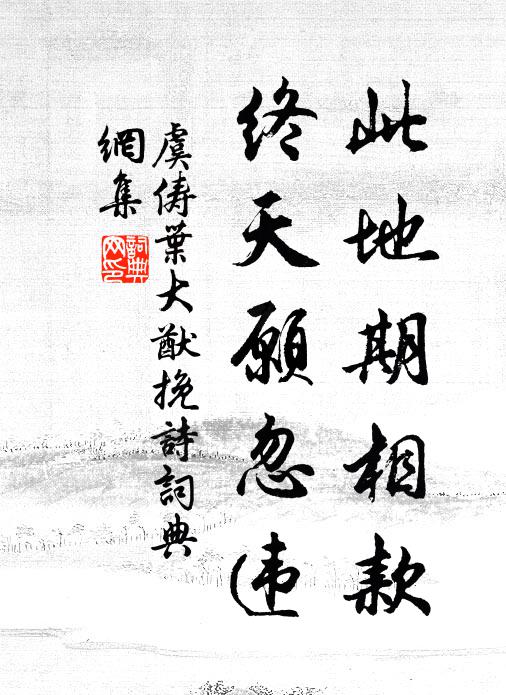 此地期相款
终天愿忽违
虞俦葉大猷挽詩詞典
網集
詞典网印